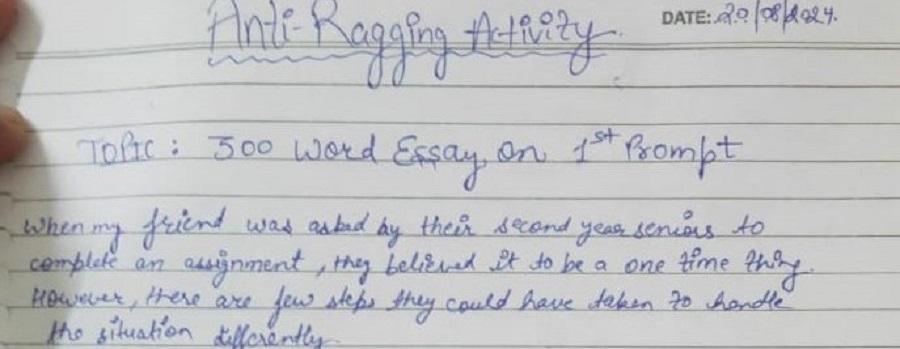 Anti-Ragging Activity
DATE: 29/08/2024.
TOPIC: 500 Word Essay on 1st Prompt
When my friend was asked by their second year seniors to
complete an assignment, they believed it to be a one time thing.
However, there are few steps they could have taken to handle
the situation differently.